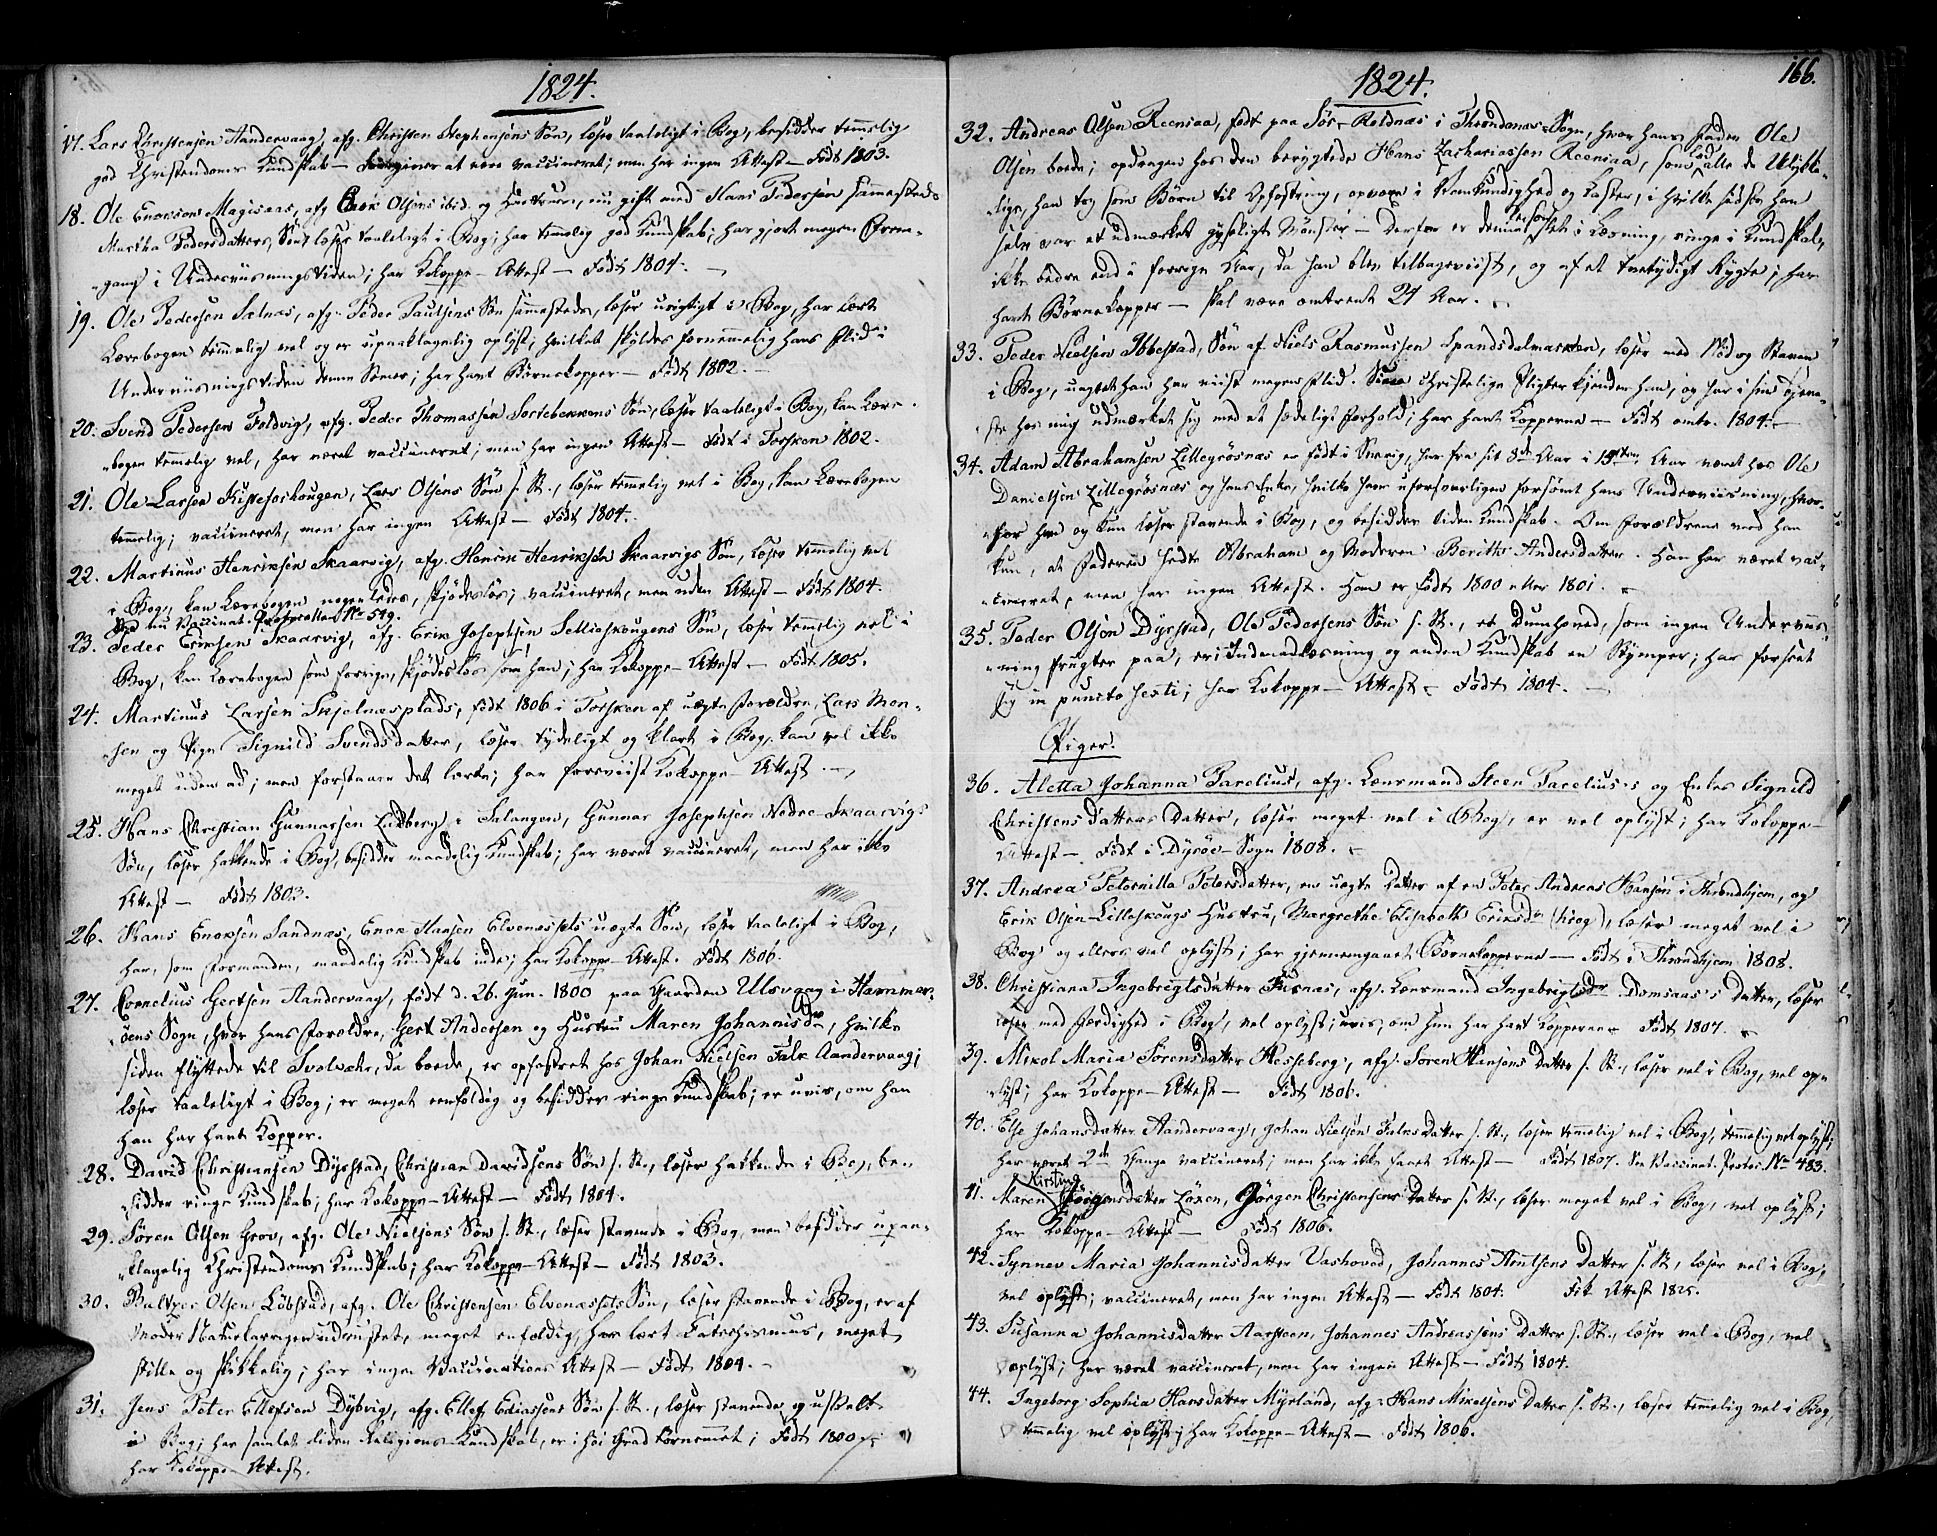 1824.
17. Lars Christensen Aandervaag, afg. Christen Stephensens Søn, læser taaleligt i Bog, besidder temmelig
god Christendoms Kundskab — foregiver at være vaccineret; men har ingen Attest — Født 1803.
18. Ole Enoksen Magesaas, afg. Enok Olsens ibid. og Hustrues, nu gift med Hans Pedersen sammesteds
Martha Pedersdatters Søn, læser taaleligt i Bog; har temmelig god Kundskab; har gjort megen Frem-
gang i Underviisningstiden; har Kokoppe-Attest — Født 1804. —
19. Ole Pedersen Sætnæs, afg. Peder Paulsens Søn sammesteds, læser urigtigt i Bog, har lært
Lærebogen temmelig vel og er upaaklagelig oplyst; hvilket skyldes fornemmelig hans Flid i
Underviisningstiden denne Sommer; har havt Børnekopper — Født 1802. —
20. Svend Pedersen Foldvig, afg. Peder Thomassen Sortebekkens Søn, læser taaleligt i Bog, kan Lære-
bogen temmelig vel, har været vaccineret; men har ingen Attest — Født i Torsken 1802.
21. Ole Larsen Kistefoshougen, Lars Olsens Søn s. St., læser temmelig vel i Bog, kan Lærebogen
temmelig; vaccineret, men har ingen Attest — Født 1804.
22. Martinus Henriksen Skaarvig, afg. Henrik Henriksen Skaarvigs Søn, læser temmelig vel
i Bog, kan Lærebogen nogenledes, skjødesløs; vaccineret, men uden Attest — Født 1804.
See nu Vaccinat. Protocollen No 549.
23. Peder Eriksen Skaarvig, afg. Erik Josephsen Sellieskougens Søn, læser temmelig vel i
Bog, kan Lærebogen som forrige, skjødesløs som han; har Kokoppe-Attest — Født 1805.
24. Martinus Larsen Skjelnæsplads, født 1806 i Torsken af uægte Forældre, Lars Mon-
sen og Pige Signild Svendsdatter, læser tydeligt og klart i Bog, kan vel ikke
meget uden ad; men forstaaer det lærte; har foreviist Kokoppe-Attest. —
25. Hans Christian Gunnarsen Lundberg i Salangen, Gunnar Josephsen Nedre-Skaarvigs
Søn, læser hakkende i Bog, besidder maadelig Kundskab; har været vaccineret, men har ikke
Attest — Født 1803.
26. Hans Enoksen Sandnæs, Enok Hansen Elvenæssets uægte Søn, læser taaleligt i Bog,
har, som Formanden, maadelig Kundskab inde; har Kokoppe-Attest. Født 1806.
27. Cornelius Gertsen Aandervaag, født d. 26. Jun. 1800 paa Gaarden Ulsvaag i Hammer-
öens Sogn, hvor hans Forældre, Gert Andersen og Hustrue Maren Johannisdr, hvilke
siden flyttede til Svolvær, da boede, er opfostret hos Johan Nielsen Falk Aandervaag;
læser taaleligt i Bog; er meget eenfoldig og besidder ringe Kundskab; er uvis, om han
han har havt Kopper.
28. David Christiansen Dyrstad, Christian Davidsens Søn s. St., læser hakkende i Bog, be-
sidder ringe Kundskab; har Kokoppe-Attest — Født 1804.
29. Søren Olsen Grov, afg. Ole Nielsens Søn s. St., læser stavende i Bog, men besidder upaa-
klagelig Christendoms Kundskab; har Kokoppe-Attest — Født 1803.
30. Baltzer Olsen Løbstad, afg. Ole Christensen Elvenæssets Søn, læser stavende i Bog, er af
Moder Natur karrigen udrustet, meget enfoldig, har lært Catechismus, meget
stille og skikkelig; har ingen Vaccinations Attest — Født 1804. —
31. Jens Peter Ellefsen Dybvig, afg. Ellef Eliassens Søn s. St., læser stavende og uskelt
i Bog; har samlet liden Religions-Kundskab, er i høi Grad tornemmet; Født 1800;
har Kokoppe-Attest.
1824.
166.
32. Andreas Olsen Reensaa, født paa Sør-Roldnæs i Throndenæs-Sogn, hvor hans Fader Ole
Olsen boede; opdragen hos den berygtede Hans Zachariassen Reensaa, som lod alle de Ulykke-
lige, han tog som Børn til Opfostring, opvoxe i Vankundighed og Laster, i hvilke sidste han
selv var et udmærket gyseligt Mønster — Derfor er denne Person slet i Læsning, ringe i Kundskab,
ikke bedre end i forrige Aar, da han blev tilbageviist, og af et tvetydigt Rygte; har
havt Børnekopper — skal være omtrent 21 Aar. —
33. Peder Nielsen Ibbestad, Søn af Niels Rasmussen Spandsdalmarken, læser med Nød og Staven
i Bog, uagtet han har viist megen Flid. Sine christelige Pligter kjender han, og har i sin Tjene-
ste hos mig udmærket sig med et sædeligt Forhold; har havt Kopperne — Født omtr. 1804. —
34. Adam Abrahamsen Lillegrøsnæs er født i Sverig, har fra sit 8de Aar i 15ten Aar været hos Ole
Danielsen Lillegrøsnæs og hans Enke, hvilke have uforsvarligen forsømt hans Underviisning, hvor-
for han og kun læser stavende i Bog, og besidder liden Kundskab. Om Forældrene veed han
kun, at Faderen hedte Abraham og Moderen Berith Andersdatter. Han har været vac-
cineret, men har ingen Attest. Han er født 1800 eller 1801. —
35. Peder Olsen Dyrstad, Ole Pedersens Søn s. St., et Dumhoved, som ingen Underviis-
ning frugter paa, er i Indenadlæsning og anden Kundskab en Stymper; har forseet
sig in puncto sexti; har Kokoppe-Attest — Født 1804. —
Piger.
36. Aletta Johanna Parelius, afg. Lænsmand Steen Parelius's og Enke Signild
Christensdatters Datter, læser meget vel i Bog, er vel oplyst; har Kokoppe-
Attest — Født i Dyröe-Sogn 1808. —
37. Andrea Peternilla Petersdatter, en uægte Datter af en Peter Andreas Hansen i Throndhjem, og
Erik Olsen Lilleskougs Hustru, Margrethe Elisabeth Eriksdr (Krog), læser meget vel i
Bog og ellers vel oplyst; har gjennemgaaet Børnekopperne — Født i Throndhjem 1808.
38. Christiana Ingebregtsdatter Fusnæs, afg. Lænsmand Ingebrigt Domsaas's Datter, læser
læser med Færdighed i Bog, vel oplyst; uvis, om hun har havt Kopperne — Født 1807. —
39. Mikol Maria Sørensdatter Hesseberg, afg. Søren Hansens Datter s. St., læser vel i Bog, vel op-
lyst; har Kokoppe-Attest — Født 1806.
40. Else Johansdatter Aandervaag, Johan Nielsen Falks Datter s. St., læser temmelig vel i Bog, temmelig vel oplyst;
har været 2de Gange vaccineret; men har ikke faaet Attest — Født 1807. See Vaccinat. Protoc. No 483.
41. Maren Kirstine Jörgensdatter Löxen, Jörgen Christensens Datter s. St., læser meget vel i Bog, vel oplyst;
har Kokoppe-Attest — Født 1806.
42. Synnev Maria Johannisdatter Vashoved, Johannes Arntsens Datter s. St., læser vel i Bog,
vel oplyst; vaccineret, men har ingen Attest — Født 1804. Fik Attest 1825.
43. Susanna Johannisdatter Aarsteen, Johannes Andreassens Datter s. St., læser vel i Bog, vel
oplyst; har været vaccineret, men har ingen Attest — Født 1804.
44. Ingeborg Sophia Hansdatter Myrland, afg. Hans Mikelsens Datter s. St., læser temmelig vel i Bog,
temmelig vel oplyst; har Kokoppe-Attest — Født 1806.